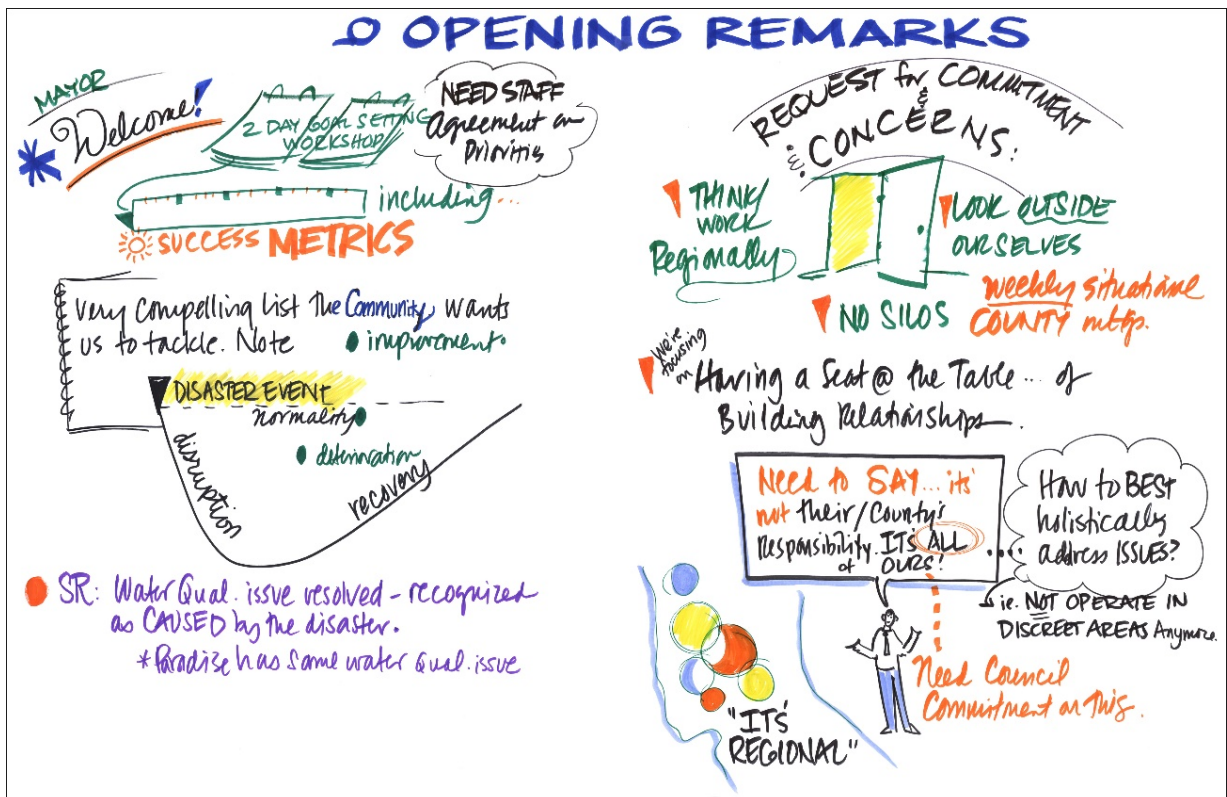 OPENING REMARKS
MAYOR
Welcome!
2 DAY GOAL SETTING
WORKSHOP
NEED STAFF
Agreement on
Priorities
including...
SUCCESS METRICS
Very compelling List The Community wants
us to tackle. Note
improvement.
DISASTER EVENT
normality
deterioration
disruption
recovery
SR: Water Qual. issue resolved - recognized
as CAUSED by the disaster.
*Paradise has same water Qual. issue
REQUEST for COMMITMENT
&
CONCERNS:
THINK/
WORK
Regionally
LOOK OUTSIDE
OURSELVES
NO SILOS
weekly situational
COUNTY mtgs.
We're
focusing
on
Having a Seat @ the Table... of
Building Relationships.
Need to SAY... its
not their/County's
Responsibility. IT'S ALL
of OURS!
How to BEST
holistically
address ISSUES?
ie. NOT OPERATE IN
DISCREET AREAS Anymore.
Need Council
Commitment on This.
"ITS'
REGIONAL"